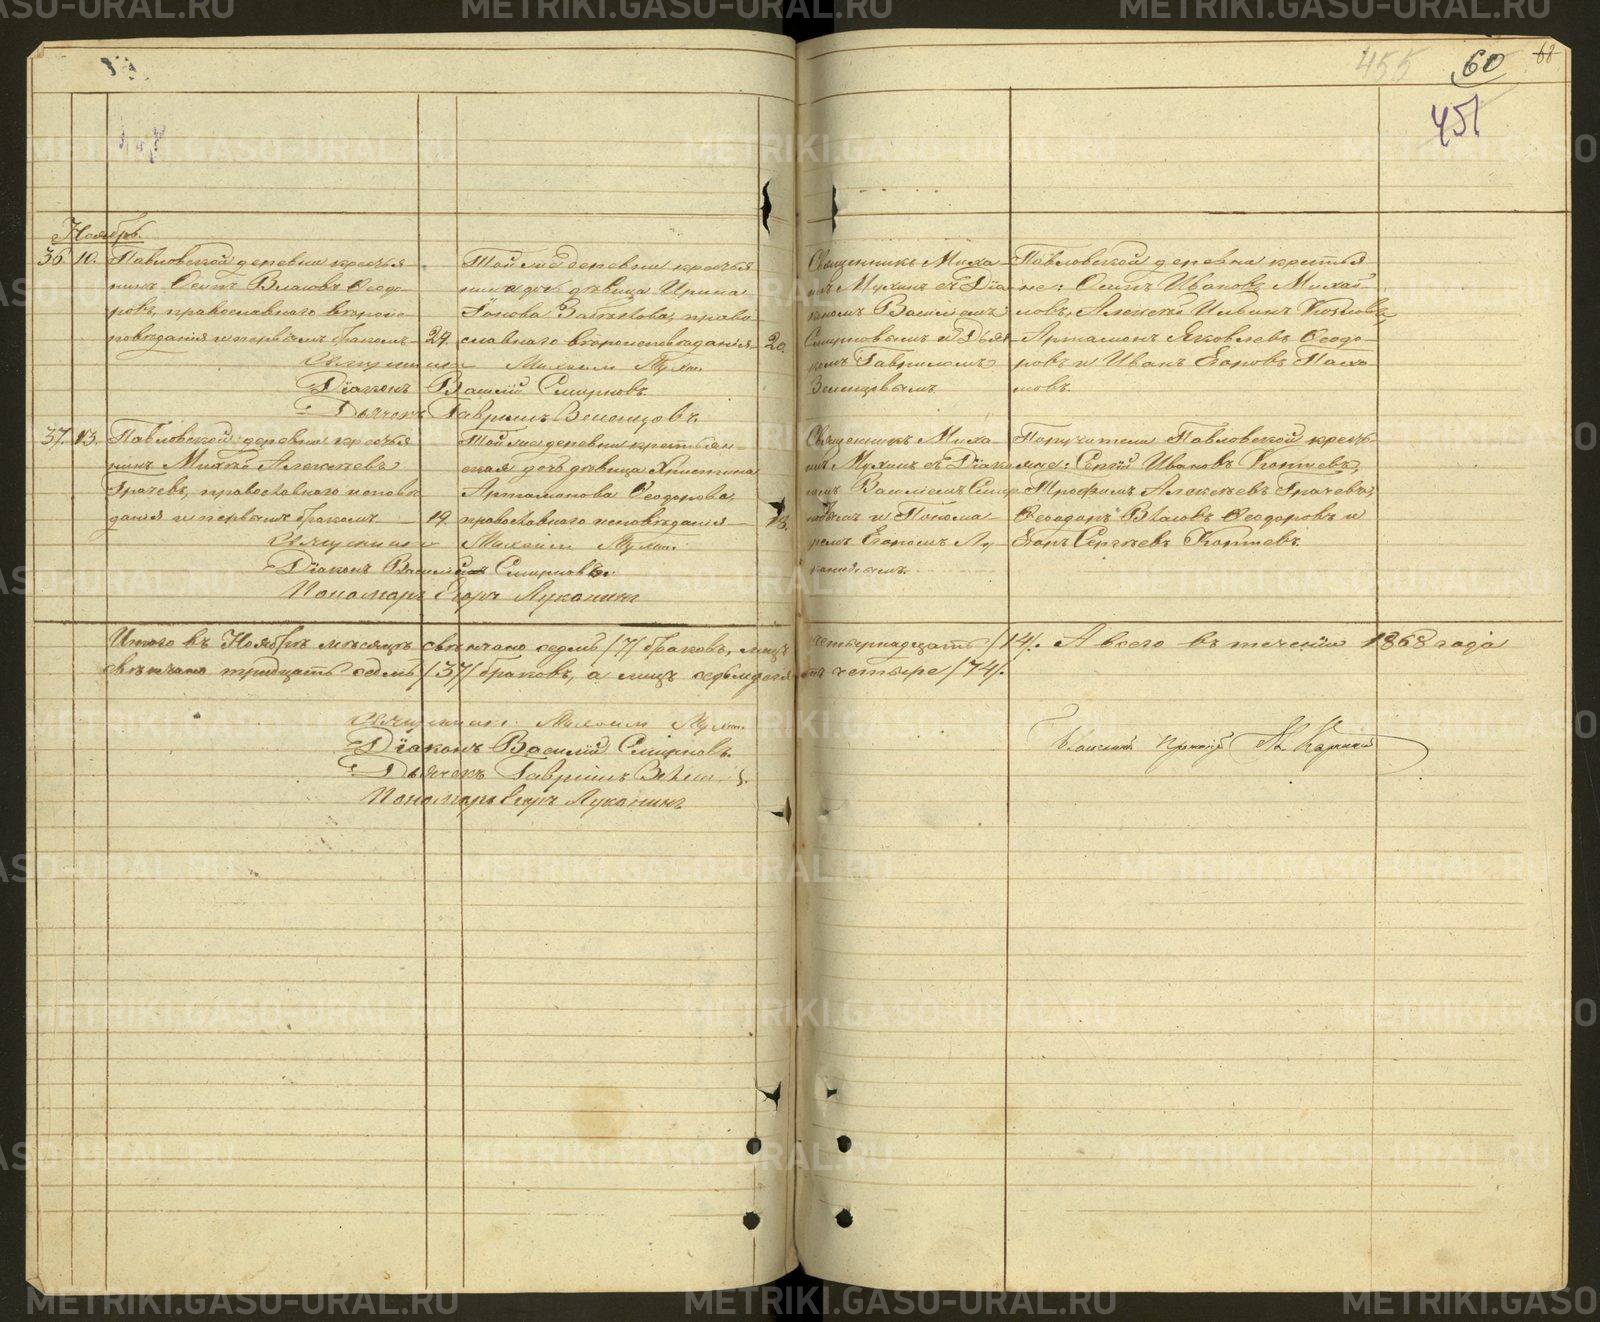 455
60
68
451
Ноябрь.
36 10. Павловской деревни крестья-
нинъ Осипъ Власовъ Ѳеодо-
ровъ, православнаго вѣроис-
повѣданія и первымъ бракомъ
24.
Той же деревни крестья-
нина дочь дѣвица Ирина
православнаго вѣроисповѣданія
20.
Священникъ Миха-
илъ Мухинъ съ Діа-
кономъ Василіемъ
Смирновымъ и Дьяч-
комъ Гавриломъ
Павловской деревни крестья-
не: Осипъ Ивановъ Михай-
ловъ, Алексѣй Ильинъ
Артамонъ Яковлевъ Ѳеодо-
ровъ и Иванъ Егоровъ Пахо-
мовъ.
Священникъ Михаилъ Мухинъ
Діаконъ Василій Смирновъ.
Дьячекъ Гавріилъ
37. 13. Павловской деревни крестья-
нинъ Алексѣевъ
Грачевъ, православнаго исповѣ-
данія и первымъ бракомъ
19.
Той же деревни крестьян-
ская дочь дѣвица Христина
Артамонова Ѳеодорова,
православнаго исповѣданія
18.
Священникъ Миха-
илъ Мухинъ съ Діако-
номъ Василіемъ Смир-
новымъ и Понома-
ремъ Егоромъ Лу-
канинымъ.
Поручители Павловской кресть-
яне: Сергій Ивановъ Коптевъ,
Трофимъ Алексѣевъ Грачевъ,
Ѳеодоръ Власовъ Ѳеодоровъ и
Егоръ Сергѣевъ Коптевъ.
Священникъ Михаилъ Мухинъ
Діаконъ Василій Смирновъ
Пономарь Егоръ Луканинъ
Итого въ Ноябрѣ мѣсяцѣ свѣнчано седмь /7/ браковъ, лицъ четырнадцать /14/. А всего въ теченіи 1868 года
свѣнчано тридцать седмь /37/ браковъ, а лицъ седьмдесятъ четыре /74/.
Священникъ Михаилъ Мухинъ
Діаконъ Василій Смирновъ.
Дьячекъ Гавріилъ
Пономарь Егоръ Луканинъ
METRIKI.GASO-URAL.RU